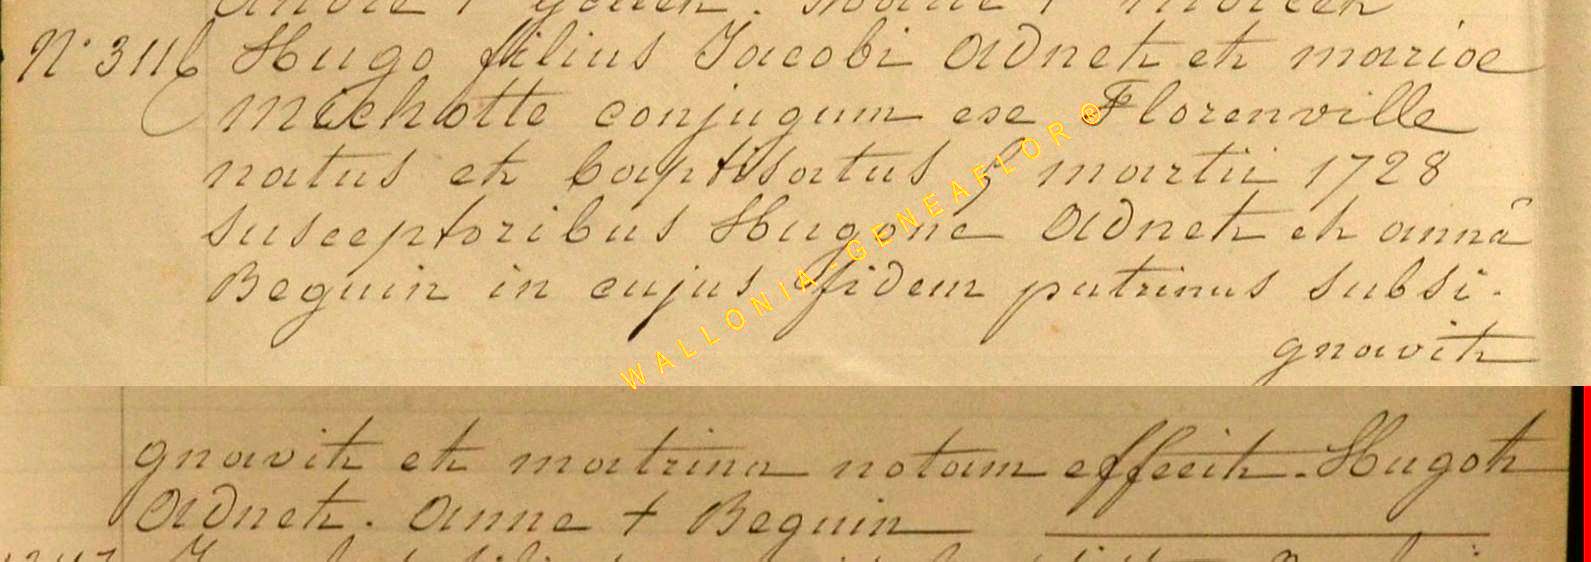 N° 3116 Hugo filius Jacobi Adnet et mariae
Michotte conjugum ex Florenville
natus et baptisatus martii 1728
susceptoribus Hugone Adnet et annâ
Beguin in cujus fidem patrinus subsi-
gnavit
gnavit et matrina notam effecit. Hugot
Adnet. Anne + Beguin
WALLONIA-GENEAFLOR®